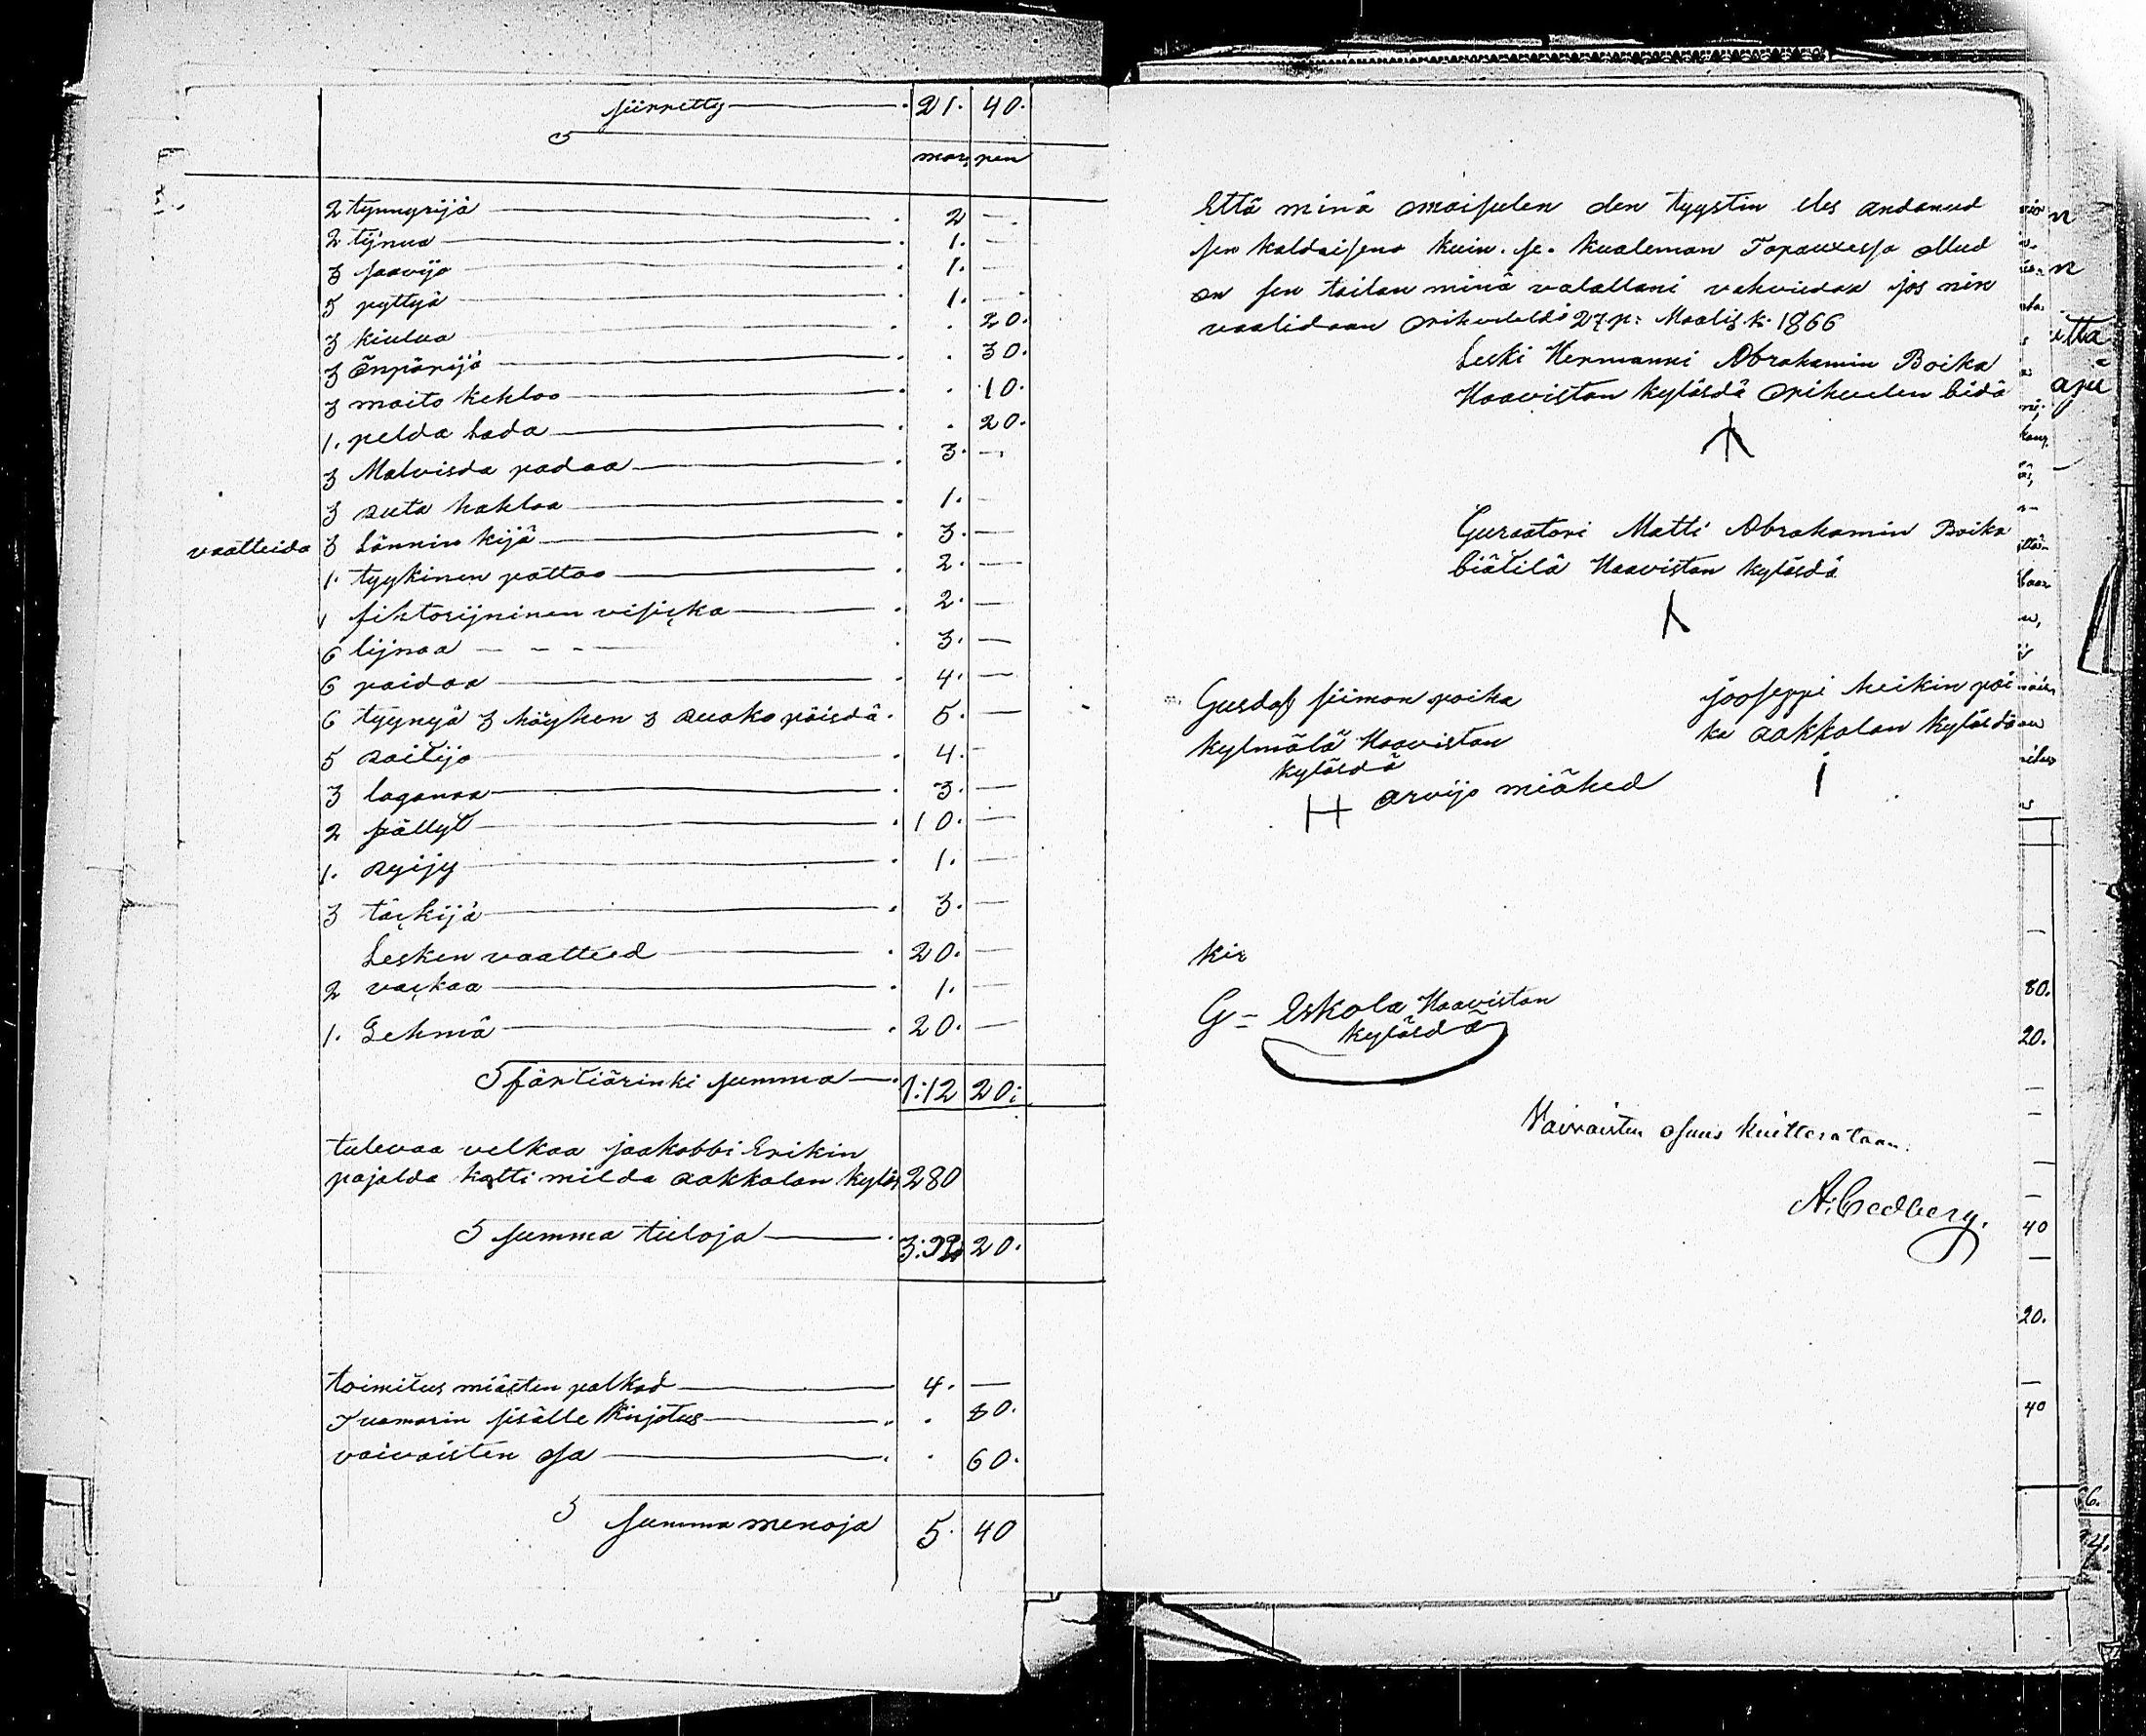 siirretty 21. 40.
mar, pen
2 tynnyrijä 2 —
2 tijnua 1. —
3 saavijo 1. —
5 pyttyä 1. —
3 kiulua . 20.
3 Änpärijä . 30.
3 maito kehloo . 10.
1. pelda Lada . 20.
3 Malvisda padaa 3. —
3 auta hakloa 1. —
vaatteida 3 Lännin kijä 3. —
1. tyykinen pattao 2. —
1 fiktorijninen visiika 2. —
6 lijnaa 3. —
6 paidaa 4. —
6 tyynyä 3 höyhen 3 ruoko päisdä 5. —
5 raitijo 4. —
3 laganaa 3. —
2 fällyt 10. —
1. ryijy 1. —
3 täckijä 3. —
Lesken vaatteed 20. —
2 vackaa 1. —
1. Lehmä 20. —
färtiärinki summa 1:12 20:
tulevaa velkaa jaakobbi Erikin
pojalda katti milda aakkalan kyläs 280
summa tuloja 3:92 20.
toimitus miästen palkad 4. —
Tuomarin sisälle Kirjotus . 80.
vaivaisten osa . 60.
summa menoja 5. 40
Että minä omaisulen den tyystin eles andanud
sen kaldaisena kuin. se. kualeman Tapauxessa ollud
on sen tailan minä valallani vahvisdaa jos niin
vaaliditaan Orihveleldä 27.p: Maalis k. 1866
Leski Hermanni Abrahamin Boika
Haaviston kyläsdä Orihvelen bidä
Guraatori Matti Abrahamin Boika
biätilä Haaviston kyläsdä
Gusdaf siimon poika
kylmälä Haaviston
kyläsdä
Jooseppi heikin poi
ka aakkalan kyläsdä
H arvijo miähed
kir
G= Eskola Haaviston
kyläsdä
Vaivaisten osuus kuitterataan.
A. Cedberg.